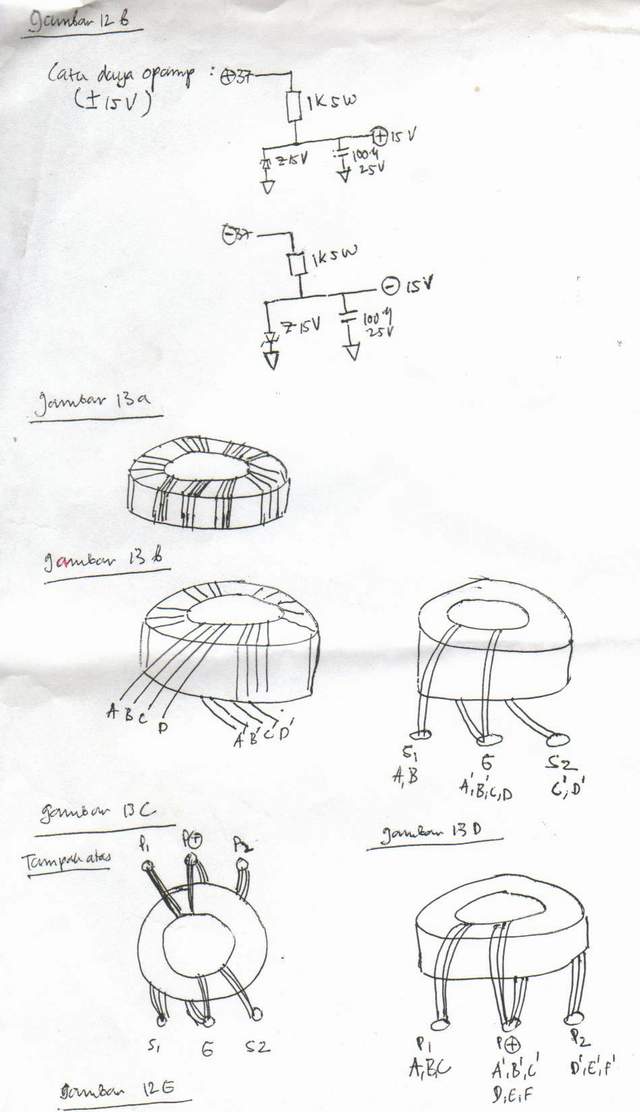 Gambar 12 B
Catu daya opamp : ⊕37
(±15V)
1K 5W
⊕ 15 V
Z 15V
100µ
25V
⊖37
1K 5W
⊖ 15V
Z 15V
100µ
25V
Gambar 13 a
Gambar 13 b
A B C D
A' B' C' D'
S1 G S2
A,B A',B',C,D C',D'
Gambar 13 C
Tampak atas
P1 P⊕ P2
S1 G S2
Gambar 13 D
P1 P⊕ P2
A,B,C A',B',C' D',E',F'
D,E,F
Gambar 12 E